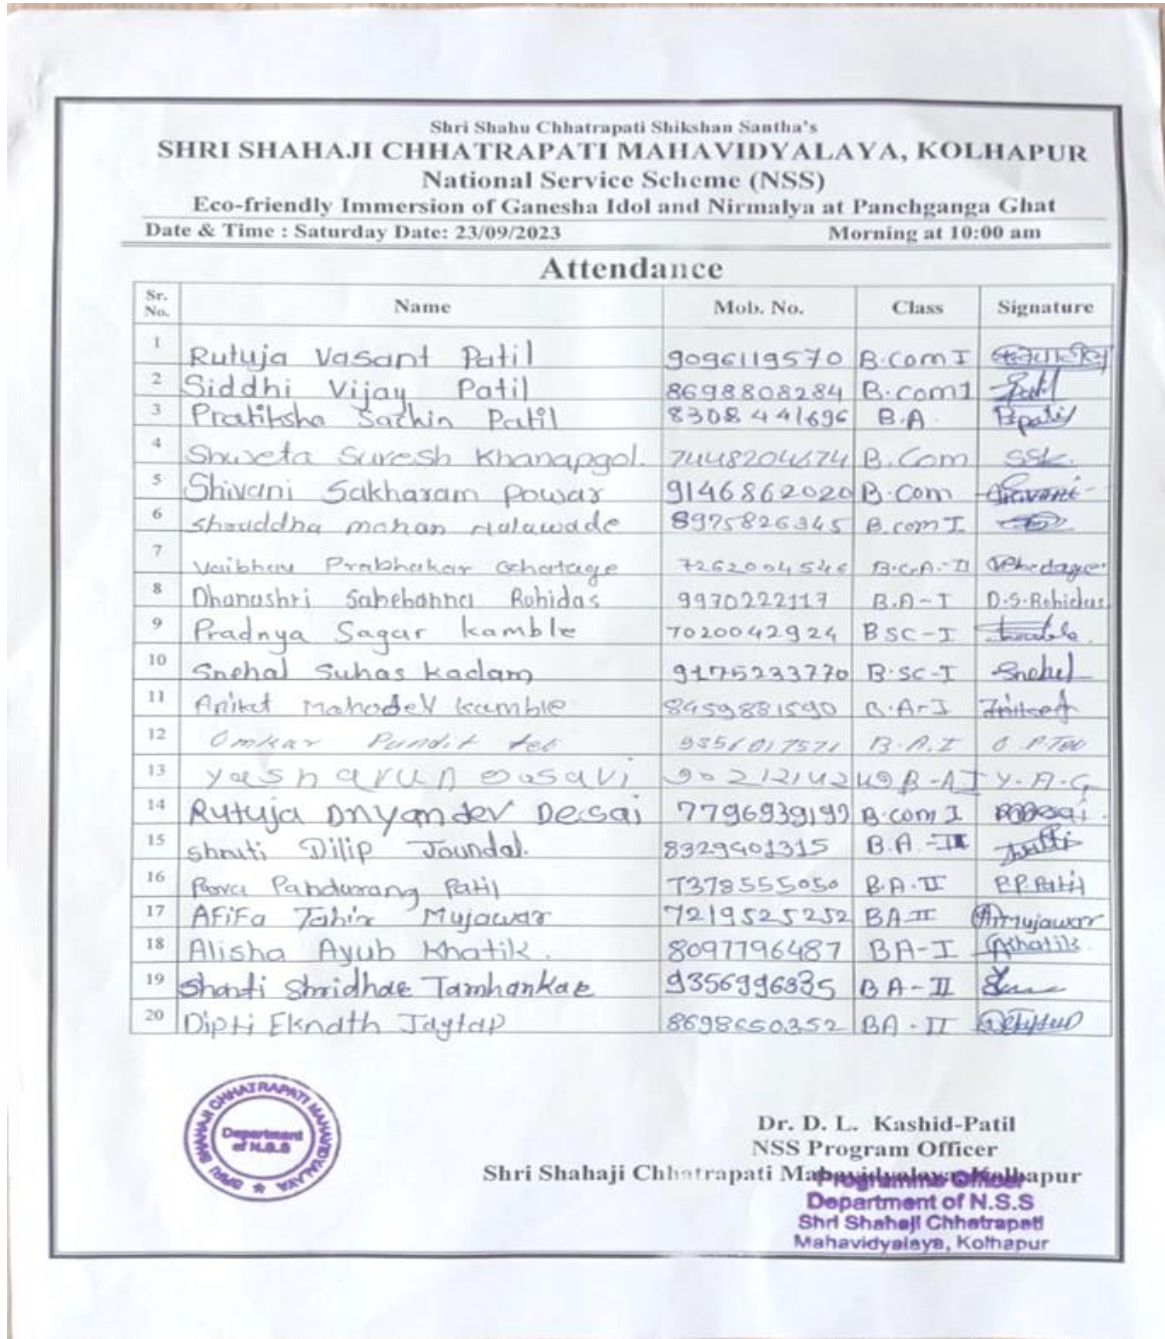 Shri Shahu Chhatrapati Shikshan Santha's
SHRI SHAHAJI CHHATRAPATI MAHAVIDYALAYA, KOLHAPUR
National Service Scheme (NSS)
Eco-friendly Immersion of Ganesha Idol and Nirmalya at Panchganga Ghat
Date & Time : Saturday Date: 23/09/2023 Morning at 10:00 am
Attendance
Sr. No. Name Mob. No. Class Signature
1 Rutuja Vasant Patil 9096119570 B.Com I
2 Siddhi Vijay Patil 8698808284 B.Com1 Patil
3 Pratiksha Sachin Patil 8308441696 B.A. Ppatil
4 Shweta Suresh Khanapgol. B.Com SSK.
5 Shivani Sakharam Powar 9146862020 B.Com Shivani
6 Shraddha mohan Halawade 8975826345 B.com I
7 Vaibhav Prabhakar Ghatage B.C.A.-II
8 Dhanashri Sahebanna Rohidas 9970222117 B.A-I D.S.Rohidas
9 Pradnya Sagar kamble 7020042924 BSC-I kamble
10 Snehal Suhas Kadam 9175233770 B.SC-I Snehal
11 Aniket Mahadev kamble 8459881590 B.A-I
12 Omkar Pandit B.A.I
13 yash arun Gosavi B-AI Y.A.G
14 Rutuja Dnyandev Desai 7796939199 B.com I
15 shruti Dilip Joundal. 8329401315 B.A.-II
16 Pandurang Patil 7378555050 B.A.II P.P.Patil
17 AFiFa Tahir Mujawar 7219525252 BA II Amujawar
18 Alisha Ayub Khatik. 8097796487 BA-I AKhatik
19 Shridhar Tamhankar 9356996835 BA-II
20 Dipti Eknath Jagtap 8698650352 BA-II
SHRI SHAHAJI CHHATRAPATI MAHAVIDYALAYA
Department of N.S.S
Dr. D. L. Kashid-Patil
NSS Program Officer
Shri Shahaji Chhatrapati Mahavidyalaya Kolhapur
Programme Officer
Department of N.S.S
Shri Shahaji Chhatrapati
Mahavidyalaya, Kolhapur